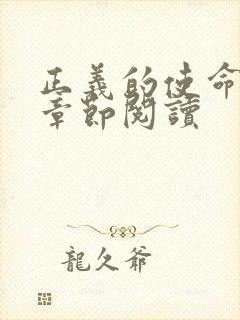 正義的使命
章節閱讀
龍久爺